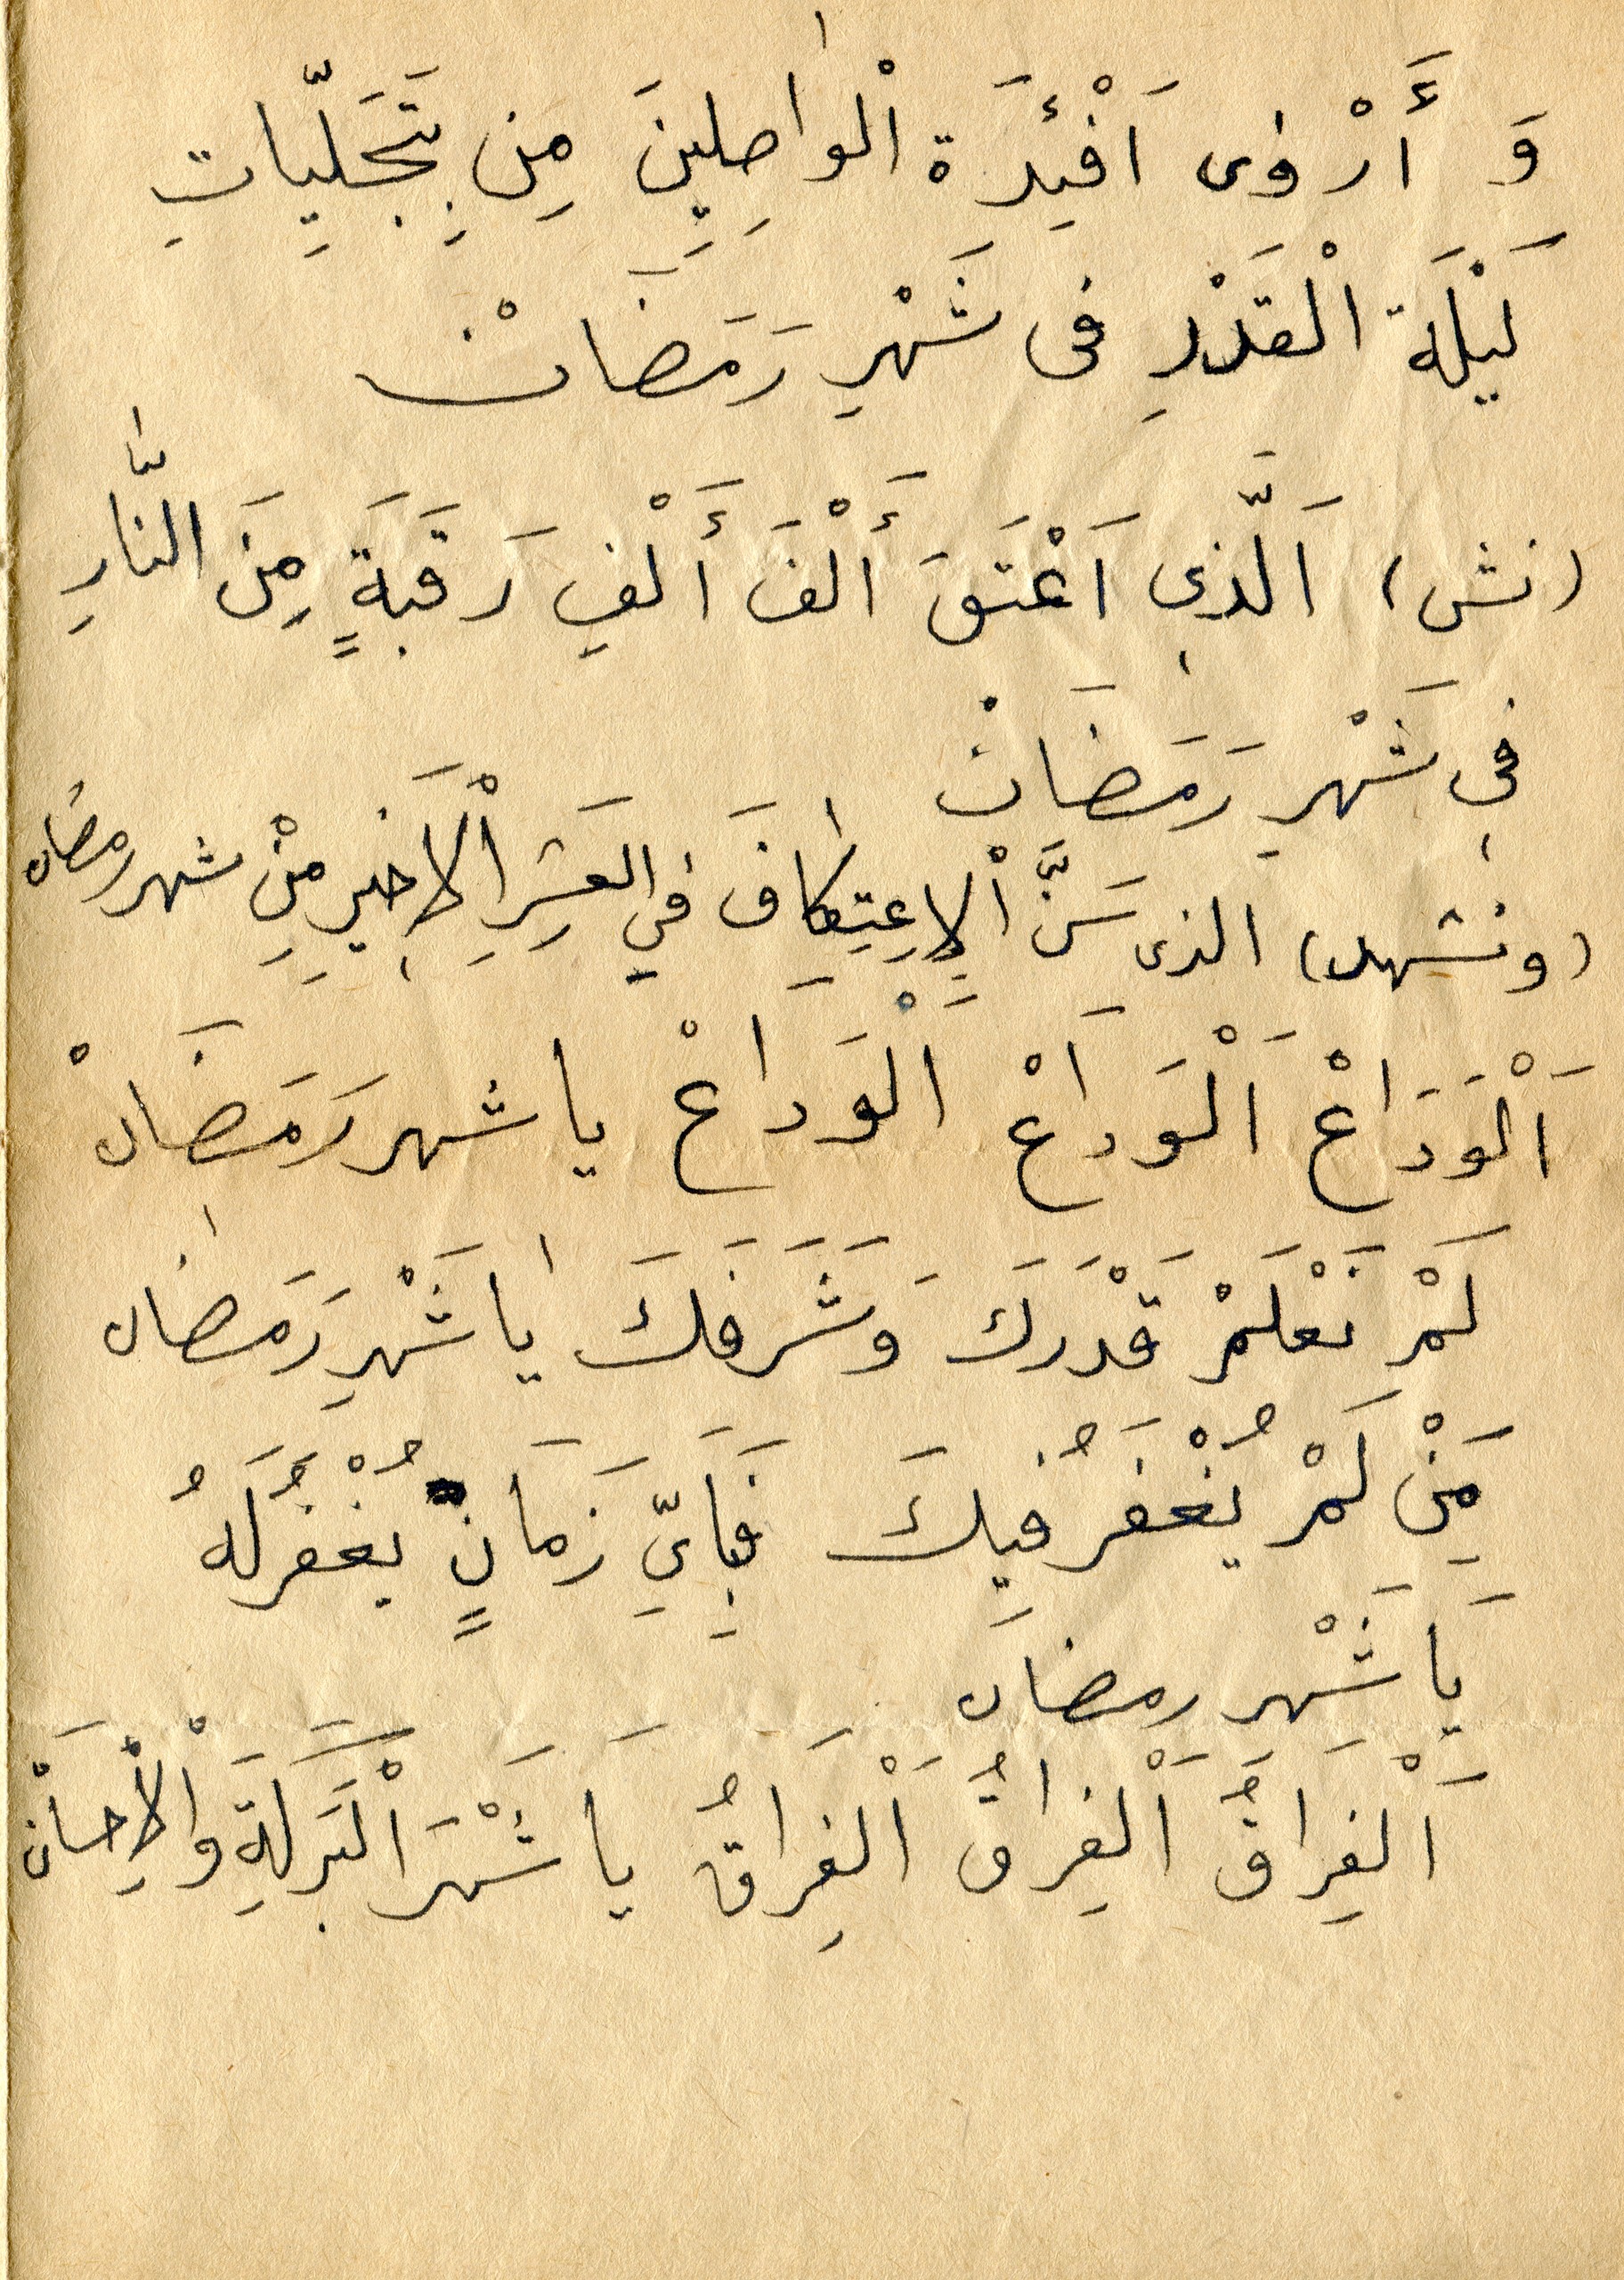 وَ أَرْوٰى اَفْئِدَة الْواصِلِينَ مِن تَجَلِّيَاتِ
لَيْلَة الْقَدْرِ فى شَهْرِ رَمَضَانْ
(نش) اَلَّذِى اَعْتَقَ أَلْفَ أَلْفِ رَقَبَةٍ مِنَ النَّارِ
فِى شَهْرِ رَمَضَانْ
(ونشهد) الذى سَنَّ الْاِعِتِكافَ فِي العَشِرِ الْاَخِيرِ مِنْ شهر رمضان
اَلْوَدَاعْ اَلْوَدَاعْ اَلْوَدَاعْ يا شهر رَمَضَانْ
لَمْ نَعْلَمْ قَدْرَكَ وَشَرَفَكَ يا شَهْرِ رَمَضان
مَنْ لَمْ يُغْفَرُ فِيكَ فَبِاَىِّ زَمَانٍ يُغْفَرُ لَهُ
يَا شَهْرِ رمضان
اَلْفِرَاقُ اَلْفِرَاقُ اَلْفِرَاقُ يَا شَهْرَ الْبَرَكَةِ وَالْاِحْسَانْ